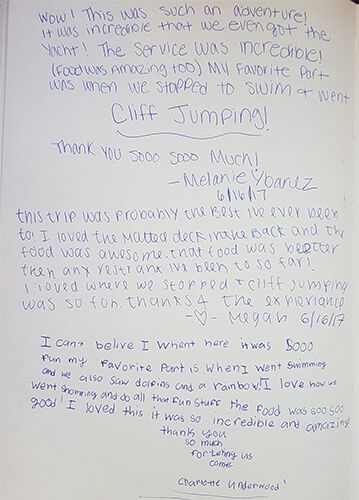 Wow! This was such an adventure!
it was incredible that we even got the
Yacht! The Service was Incredible!
(Food was Amazing too) My Favorite Part
was when we stopped to swim & went
Cliff Jumping!
Thank You sooo sooo Much!
- Melanie Ybanez
6/16/17
this trip was probably the Best i've ever been
to! I loved the Matted deck in the Back and the
food was awesome. that food was better
then any restrant i've been to so far!
I loved where we stopped & cliff jumping
was so fon. thanks 4 the experiance
-♡- Megan 6/16/17
I can't belive I whent here it was sooo
fun my favorite Part is when I went swimming
and we also saw dolfins and a rainbow! I love how we
went swimming and do all that fun stuff the food was soo soo
good! I loved this it was so incredible and amazing!
thank you
so much
for letting us
come
Charlotte Underwood!